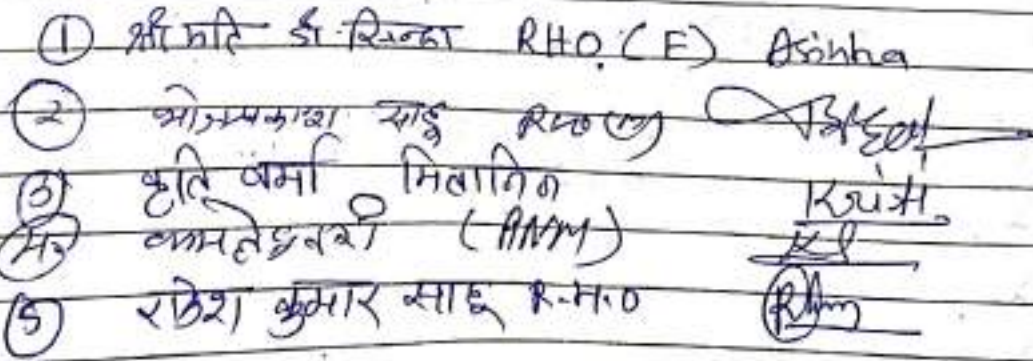 ① श्रीमति डी सिन्हा RHO. (E) Asinha
② ओमप्रकाश साहू RHO (M)
③ कृति वर्मा मितानिन Kriti.
कामतेश्वरी (ANM)
⑤ राजेश कुमार साहू R.H.O